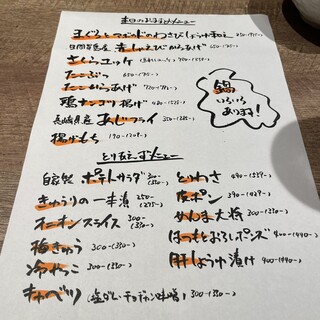 本日のおすすめメニュー
まぐろとアボカドのわさびしょうゆ和え
赤しゃえびからあげ
さくらユッケ
たこぶつ 650
たこからあげ
鶏ナンコツ揚げ
長崎県産 あじフライ 350
揚げもち 190
鍋
いろいろ
あります!
とりあえずメニュー
自家製 ポテトサラダ 300 (330-)
きゅうりの一本漬 250- (275-)
オニオンスライス 300- (330-)
梅きゅう 300-(330-)
冷やっこ 300-(330-)
キャベツ (塩ダレ・チョジャン・味噌) 300(330-)
とりわさ 490-(539-)
皮ポン 390-(429-)
めんま大将 300-(330-)
はつもとおろしポンズ 400-(440-)
肝しょうゆ漬け 400-(440-)